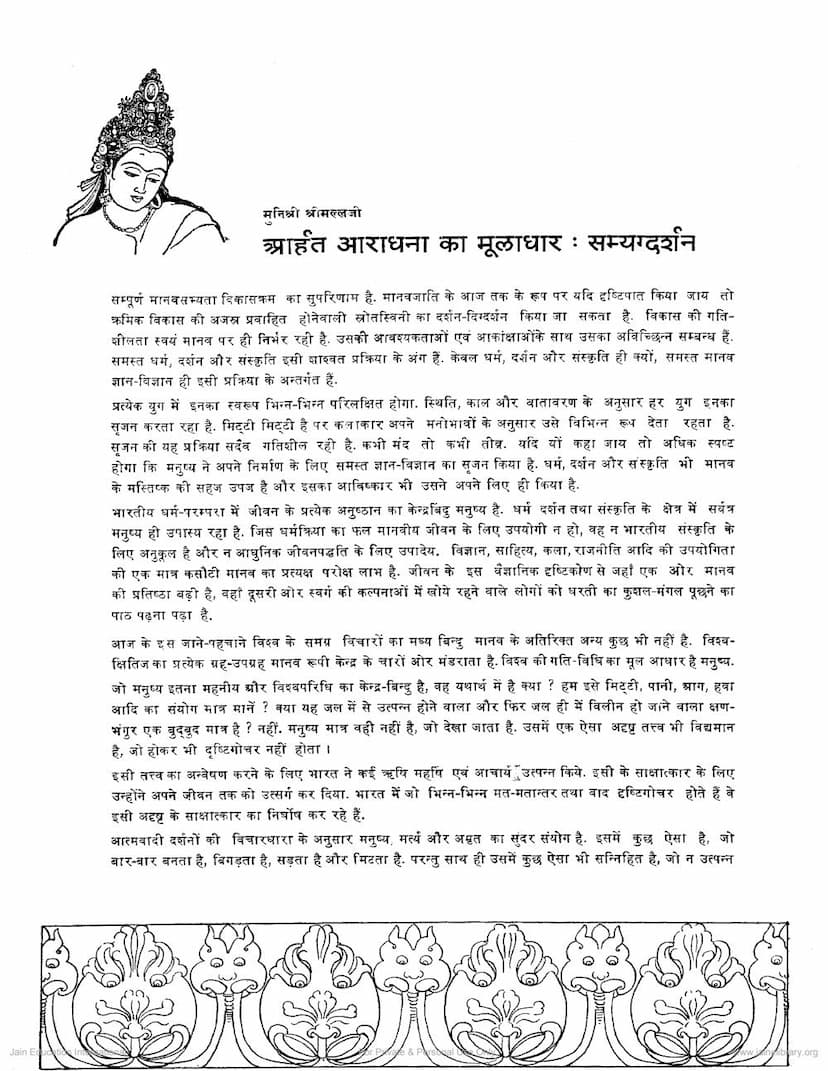 मुनिश्री श्रीमल्लजी
आर्हत आराधना का मूलाधार : सम्यग्दर्शन
सम्पूर्ण मानवसभ्यता विकासक्रम का सुपरिणाम है. मानवजाति के आज तक के रूप पर यदि दृष्टिपात किया जाय तो
क्रमिक विकास की अजस्र प्रवाहित होनेवाली स्रोतस्विनी का दर्शन-दिग्दर्शन किया जा सकता है. विकास की गति-
शीलता स्वयं मानव पर ही निर्भर रही है. उसकी आवश्यकताओं एवं आकांक्षाओंके साथ उसका अविच्छिन्न सम्बन्ध हैं.
समस्त धर्म, दर्शन और संस्कृति इसी शाश्वत प्रक्रिया के अंग हैं. केवल धर्म, दर्शन और संस्कृति ही क्यों, समस्त मानव
ज्ञान-विज्ञान ही इसी प्रक्रिया के अन्तर्गत हैं.
प्रत्येक युग में इनका स्वरूप भिन्न-भिन्न परिलक्षित होगा. स्थिति, काल और वातावरण के अनुसार हर युग इनका
सृजन करता रहा है. मिट्टी मिट्टी है पर कलाकार अपने मनोभावों के अनुसार उसे विभिन्न रूप देता रहता है.
सृजन की यह प्रक्रिया सदैव गतिशील रही है. कभी मंद तो कभी तीव्र. यदि यों कहा जाय तो अधिक स्पष्ट
होगा कि मनुष्य ने अपने निर्माण के लिए समस्त ज्ञान-विज्ञान का सृजन किया है. धर्म, दर्शन और संस्कृति भी मानव
के मस्तिष्क की सहज उपज है और इसका आविष्कार भी उसने अपने लिए ही किया है.
भारतीय धर्म-परम्परा में जीवन के प्रत्येक अनुष्ठान का केन्द्रबिंदु मनुष्य है. धर्म दर्शन तथा संस्कृति के क्षेत्र में सर्वत्र
मनुष्य ही उपास्य रहा है. जिस धर्मक्रिया का फल मानवीय जीवन के लिए उपयोगी न हो, वह न भारतीय संस्कृति के
लिए अनुकूल है और न आधुनिक जीवनपद्धति के लिए उपादेय. विज्ञान, साहित्य, कला, राजनीति आदि की उपयोगिता
की एक मात्र कसौटी मानव का प्रत्यक्ष परोक्ष लाभ है. जीवन के इस वैज्ञानिक दृष्टिकोण से जहाँ एक ओर मानव
की प्रतिष्ठा बढ़ी है, वहाँ दूसरी ओर स्वर्ग की कल्पनाओं में खोये रहने वाले लोगों को धरती का कुशल-मंगल पूछने का
पाठ पढ़ना पड़ा है.
आज के इस जाने-पहचाने विश्व के समग्र विचारों का मध्य बिन्दु मानव के अतिरिक्त अन्य कुछ भी नहीं है. विश्व-
क्षितिज का प्रत्येक ग्रह-उपग्रह मानव रूपी केन्द्र के चारों ओर मंडराता है. विश्व की गति-विधि का मूल आधार है मनुष्य.
जो मनुष्य इतना महनीय और विश्वपरिधि का केन्द्र-बिन्दु है, वह यथार्थ में है क्या ? हम इसे मिट्टी, पानी, आग, हवा
आदि का संयोग मात्र मानें ? क्या यह जल में से उत्पन्न होने वाला और फिर जल ही में विलीन हो जाने वाला क्षण-
भंगुर एक बुद्बुद मात्र है ? नहीं. मनुष्य मात्र वही नहीं है, जो देखा जाता है. उसमें एक ऐसा अदृष्ट तत्त्व भी विद्यमान
है, जो होकर भी दृष्टिगोचर नहीं होता ।
इसी तत्त्व का अन्वेषण करने के लिए भारत ने कई ऋषि महर्षि एवं आचार्य उत्पन्न किये. इसी के साक्षात्कार के लिए
उन्होंने अपने जीवन तक को उत्सर्ग कर दिया. भारत में जो भिन्न-भिन्न मत-मतान्तर तथा वाद दृष्टिगोचर होते हैं वे
इसी अदृष्ट के साक्षात्कार का निर्घोष कर रहे हैं.
आत्मवादी दर्शनों की विचारधारा के अनुसार मनुष्य, मर्त्य और अमृत का सुंदर संयोग है. इसमें कुछ ऐसा है, जो
बार-बार बनता है, बिगड़ता है, सड़ता है और मिटता है. परन्तु साथ ही उसमें कुछ ऐसा भी सन्निहित है, जो न उत्पन्न
Jain Education International
For Private & Personal Use Only
www.jainelibrary.org